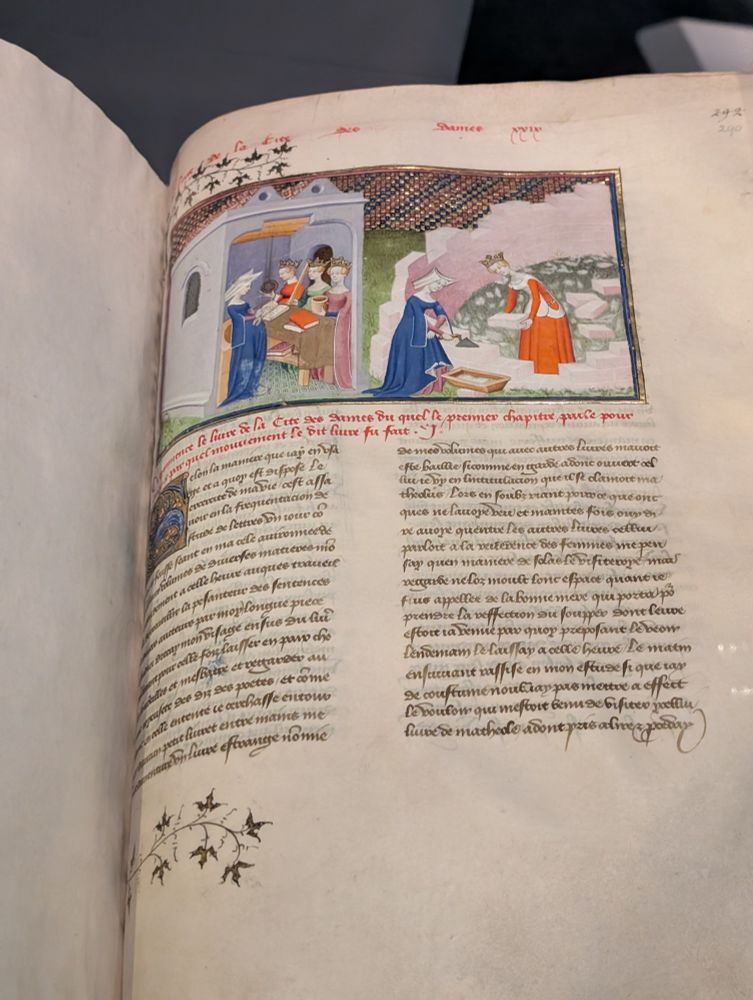 de la Cite des dames xxix
292
290
Commence le livre de la Cite des dames du quel le premier chapitre parle pour
quoy et par quel mouvement le dit livre fu fait . I.
Selon la maniere que iay en usa
ge et a quoy est dispose le
excercite de ma vie cest assa
voir en la frequentacion de
estude de lettres un iour co
me ie feusse seant en ma cele avironnee de
volumes de diverses matieres mo
a celle heure auques travaill
la pesanteur des sentences
aucteurs par moy longue piece
mon visage ensus du liv
pour celle foiz laisser en paix cho
et mesbatre et regarder au
des diz des poetes et come
en celle entente ie cerchasse entour
petit livret entre mains me
un livre estrange nomme
de mes volumes qui avec autres livres mavoit
este baillie si comme en garde adont ouvert cel
lui ie vy en lintitulacion que il se clamoit ma
theolus Lors en soubz riant pour ce que onc
ques ne lavoye veu et maintes fois ouy di
re avoye quentre les autres livres cellui
parloit a la reverence des femmes me pen
say quen maniere de solas le visiteroye mais
regarde ne loz moult lonc espace quant ie
fus appellee de la bonne mere qui porta po
prendre la reffection du soupper dont leure
estoit ia venue par quoy proposant le veoir
lendemain le laissay a celle heure Le matin
ensuivant rassise en mon estude si que iay
de coustume noubliay pas mettre a effect
le vouloir qui mestoit venu de visiter ycellui
livre de matheole adont pris a lire